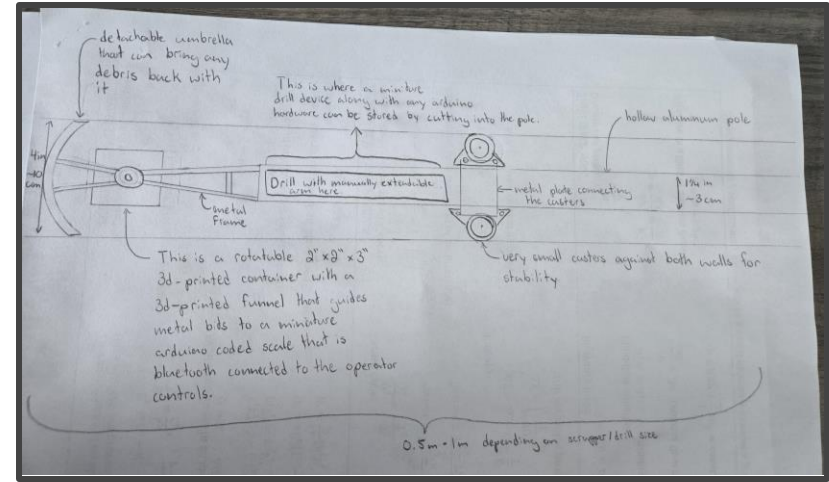 detachable umbrella
that can bring any
debris back with
it
This is where a miniture
drill device along with any arduino
hardware can be stored by cutting into the pole.
hollow aluminum pole
4in
~10
cm
Drill with manually extendable
arm here
metal
frame
metal plate connecting
the casters
1¼ in
~3cm
This is a rotatable 2"x2"x3"
3d-printed container with a
3d-printed funnel that guides
metal bits to a miniature
arduino coded scale that is
bluetooth connected to the operator
controls.
very small casters against both walls for
stability
0.5m-1m depending on /drill size